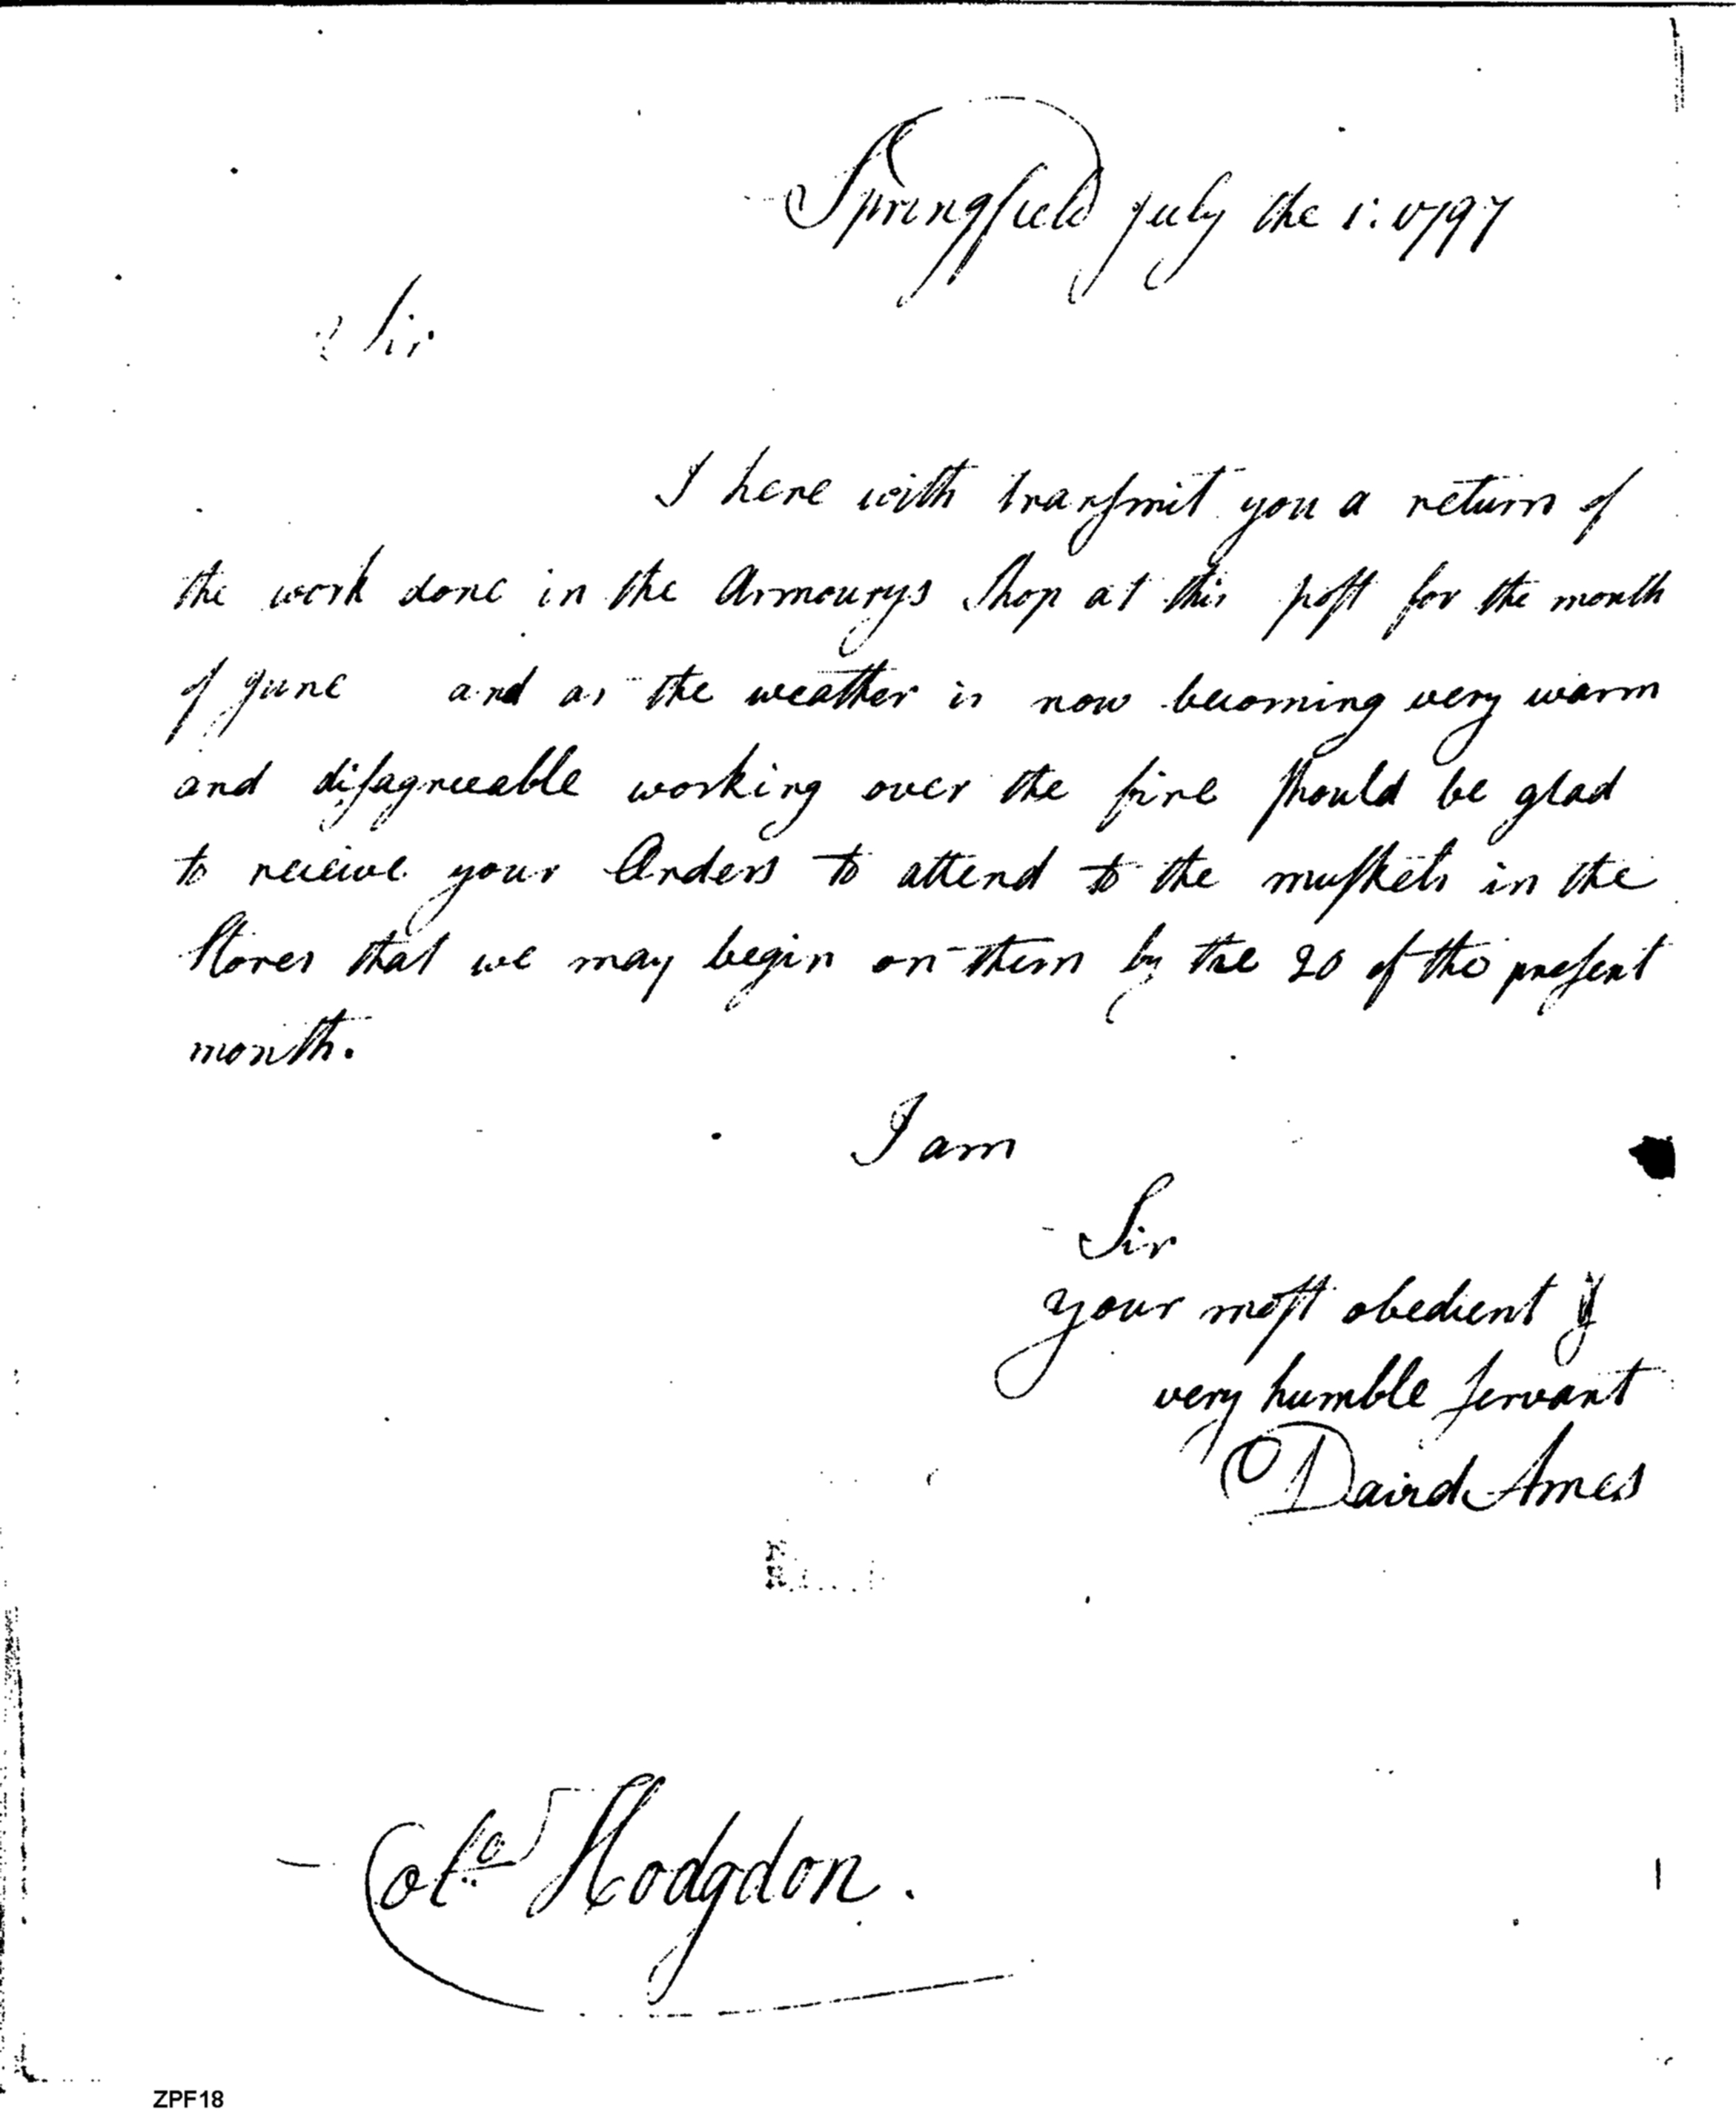 Springfield July the 1: 1797
Sir
I here with transmit you a return of
the work done in the Armourys Shop at this post for the month
of June and as the weather is now becoming very warm
and disagreeable working over the fire should be glad
to receive your Orders to attend to the muskets in the
Stores that we may begin on them by the 20 of the present
month.
I am
Sir
your most obedient &
very humble servant
David Ames
Colo Hodgdon.
ZPF18